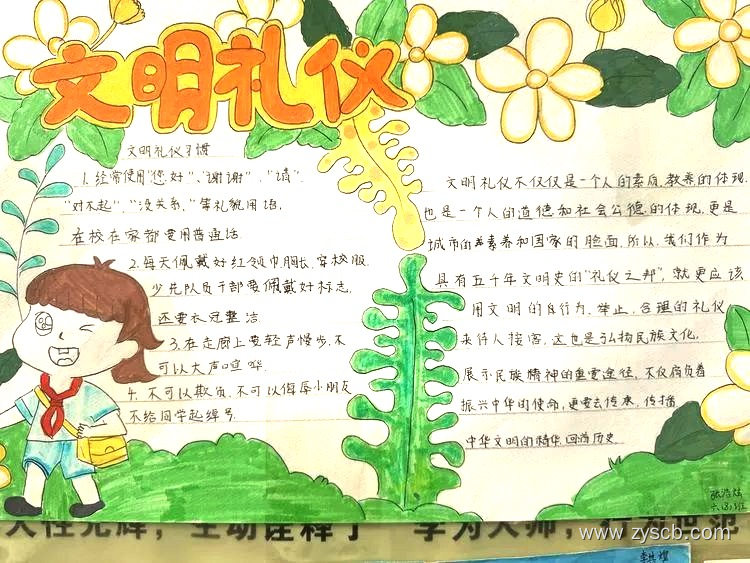 文明礼仪
文明礼仪习惯
1.经常使用"您好"、"谢谢"、"请"
"对不起"、"没关系"等礼貌用语,
在校在家都要用普通话
2.每天佩戴好红领巾胸长,穿校服
少先队员干部要佩戴好标志,
还要衣冠整洁
3.在走廊上要轻声慢步,不
可以大声喧哗
4.不可以欺负,不可以侮辱小朋友
不给同学起绰号
文明礼仪不仅仅是一个人的素质,教养的体现,
也是一个人的道德和社会公德的体现,更是
城市的素养和国家的脸面,所以,我们作为
具有五千年文明史的"礼仪之邦",就更应该
用文明的自行为、举止,合理的礼仪
来待人接客,这也是弘扬民族文化,
展示民族精神的重要途径,不仅肩负着
振兴中华的使命,更要去传承,传播
中华文明的精华,回首历史
张浩
学为人师,
www.zyscb.com